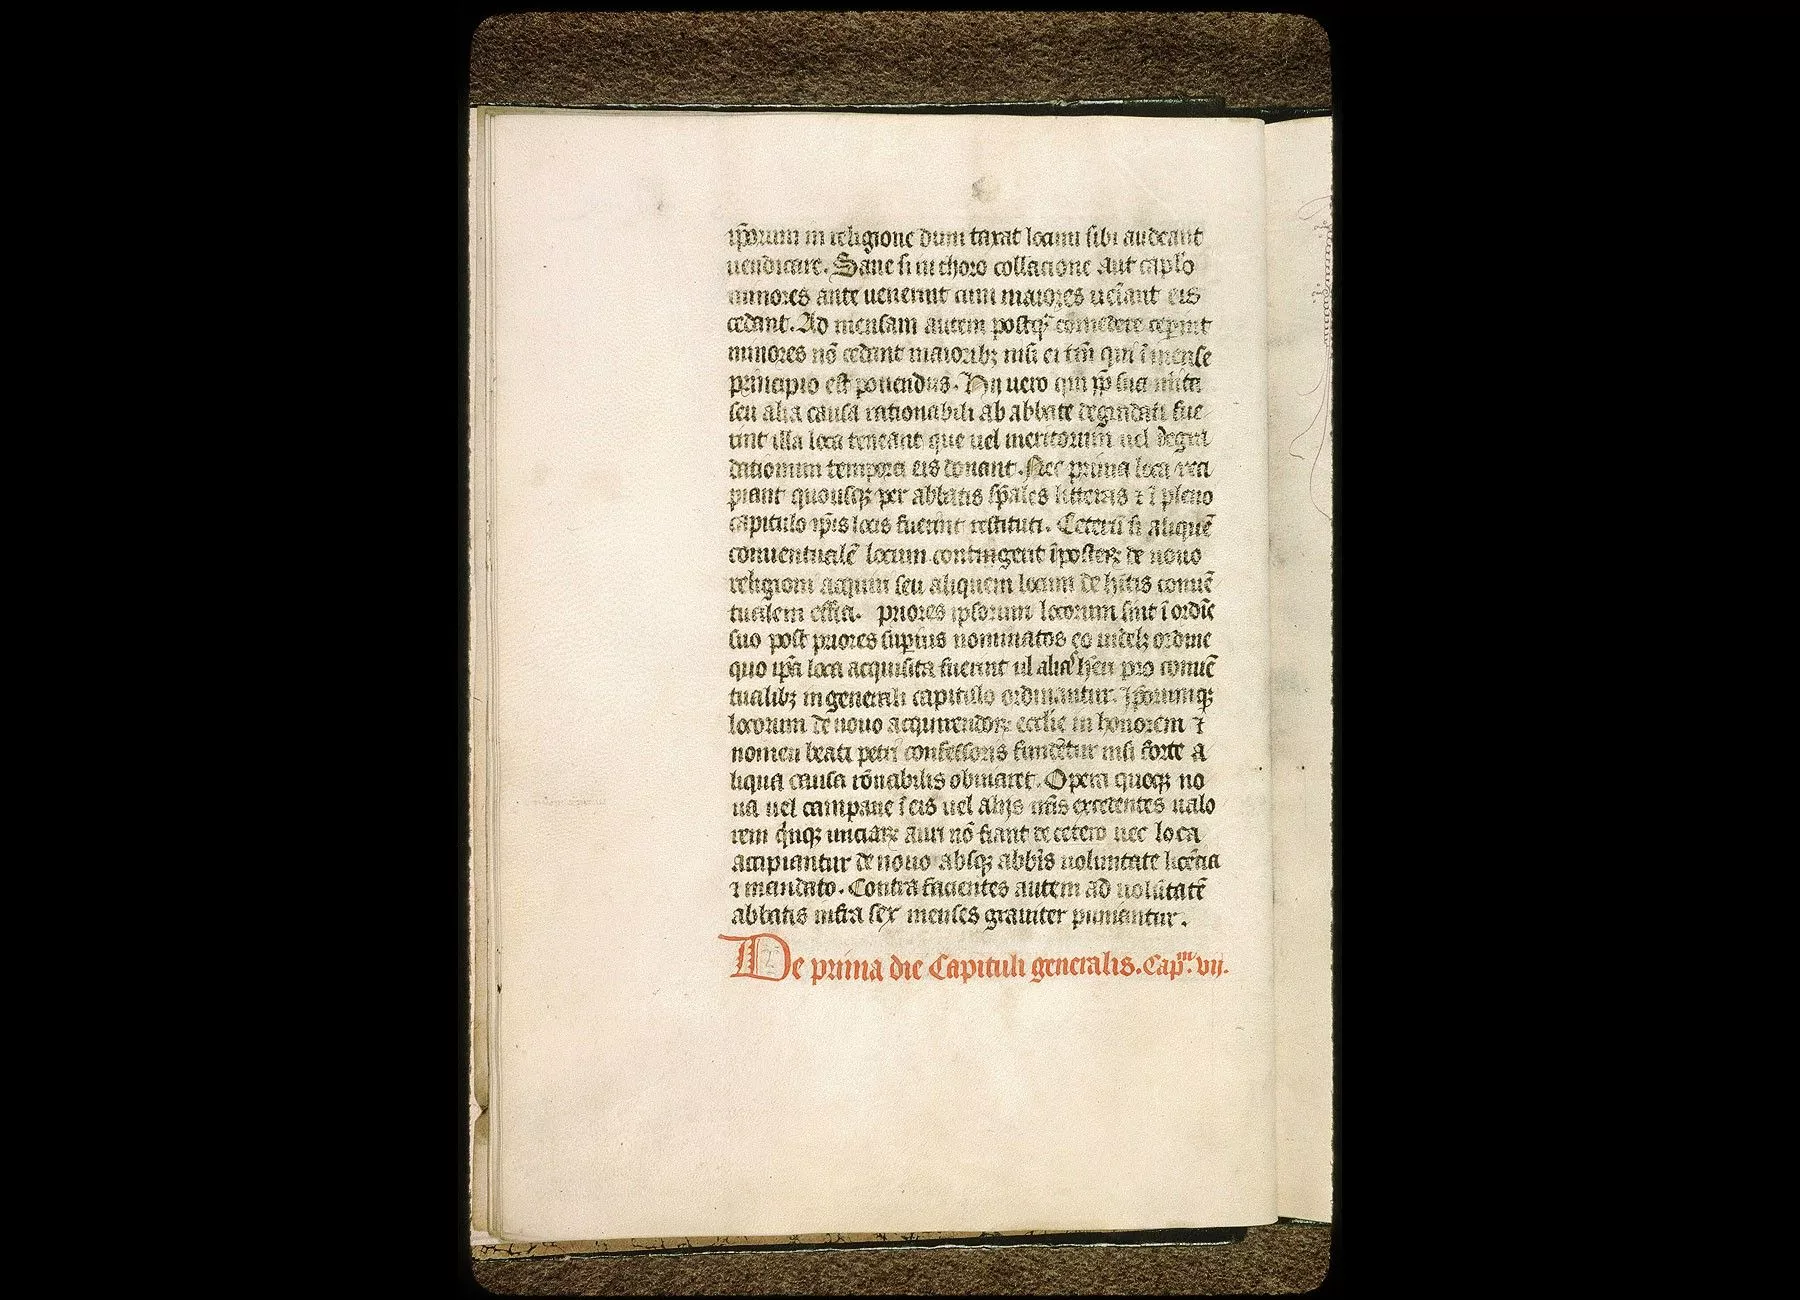 ip̄orum in religione dum taxat locum sibi audeant
uendicare. Sane si in choro collacione aut caplo
minores ante uenerint cum maiores uen̄ant eis
cedant. Ad mensam autem postq̄ comedere ceperint
minores nō cedant maioribꝫ nisi ei tm̄ qui ī mense
principio est ponendus. Hij uero qui ꝓ sua
seu alia causa rationabili ab abbate degradati fue
rint illa loca teneant que uel meritorum uel degra
dationum tempora eis donant. Nec prima loca reci
piant quousqꝫ per abbatis sp̄ales litteras ⁊ ī pleno
capitulo ip̄is locis fuerint restituti. Ceterū si aliquē
conuentualē locum contingerit īposteꝝ de nouo
religioni acquiri seu aliquem locum de hītis conuē
tualem effici. priores ipsorum locorum sint ī ordīe
suo post priores supius nominatos eo uidelꝫ ordine
quo ip̄a loca acquisita fuerint ul alias hēri pro conuē
tualibꝫ in generali capitulo ordinantur. Ip̄orumqꝫ
locorum de nouo acquirendoꝝ ecclīe in honorem ⁊
nomen beati petri confessoris fundētur nisi forte a
liqua causa rōnabilis obuiaret. Opera quoqꝫ no
ua uel campane ī eis uel alijs nr̄is excedentes ualo
rem quīqꝫ unciaꝝ auri nō fiant de cetero nec loca
accipiantur de nouo absqꝫ abb̄is uoluntate licēcia
⁊ mandato. Contra facientes autem ad uolūtatē
abbatis infra sex menses grauiter puniantur.
De prima die Capituli generalis. Capᵐ. vij.